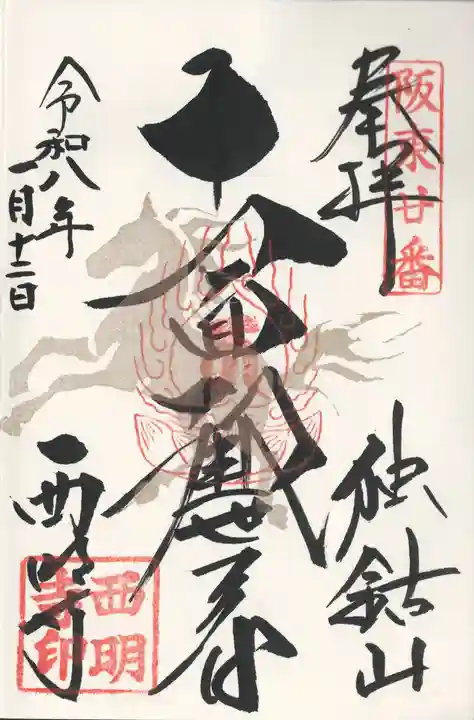 阪東廿番
奉拝
独鈷山
十一面観世音
西明寺
西明寺印
令和八年
一月十二日